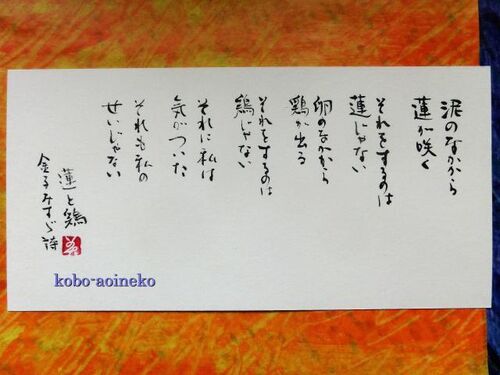 泥のなかから
蓮が咲く
それをするのは
蓮じゃない
卵のなかから
鶏が出る
それをするのは
鶏じゃない
それに私は
気がついた
それも私の
せいじゃない
蓮と鶏
金子みすゞ詩
kobo-aoineko